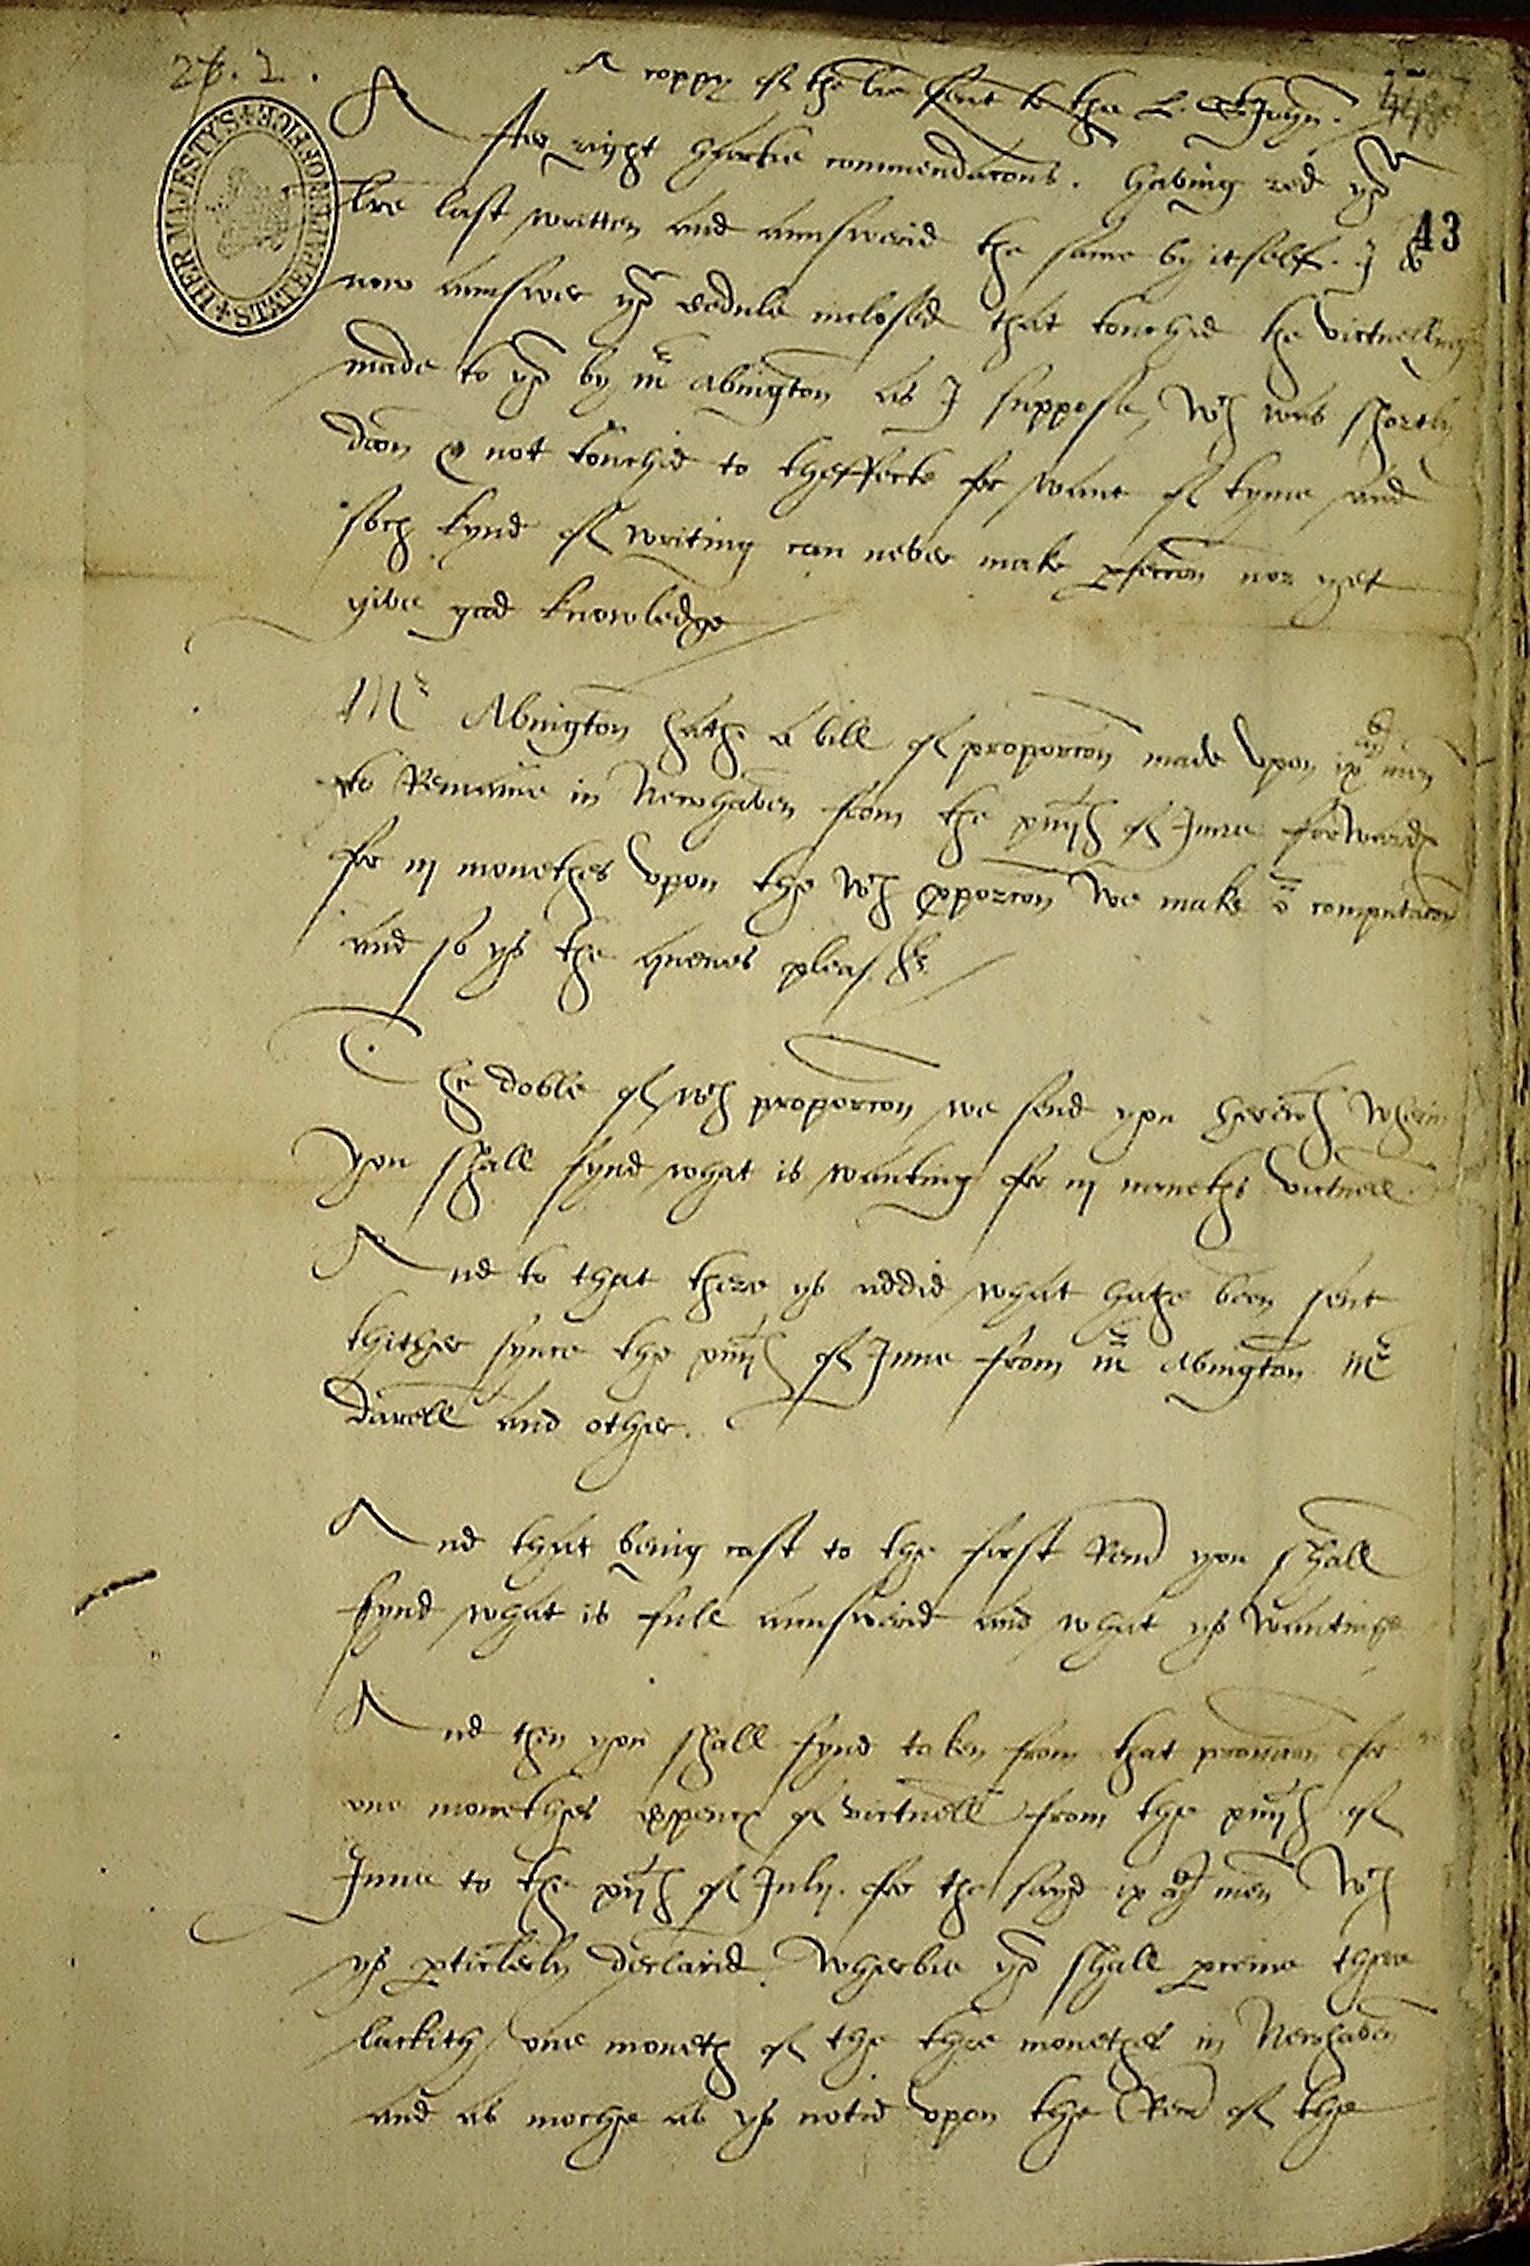 A coppy of the lre sent to the L. Th
43
HER MAJESTYS STATE PAPER OFFICE
After right hartie commendacons. Having red yor
lre last written and aunswerid the same by itself. I do
now aunswer yor cedule inclosed that touchid the victuelling
made to yow by mr Abington as I suppose, wch was shortly
doon & not touchid to theffecte for want of tyme and
soch kynd of writing can never make pfeccon nor yet
give good knowledge
Mr Abington hathe a bill of proporcon made upon men
to Remaine in Newhaven from the xiiijth of June forward
for iij monethes upon the wch pporcon we make or computacon
and so ys the quenes pleasr
The doble of wch proporcon we send you herewth wherin
you shall fynd what is wanting for iij moneths victuell
And to that there ys addid what hathe been sent
thither synce the xiiijth of June from mr Abington Mr
Darell and other.
And that being cast to the first Rem you shall
fynd what is full aunswerid and what ys wantinge
And then you shall fynd taken from that for
one monethes expence of victuell from the xiiijth of
June to the xijth of July. for the sayd men wch
ys pticlerly declarid. Wherbie yow shall pceive there
lackith one moneth of the thre monethes in Newhaven
and as moche as ys notid upon the Rem of the